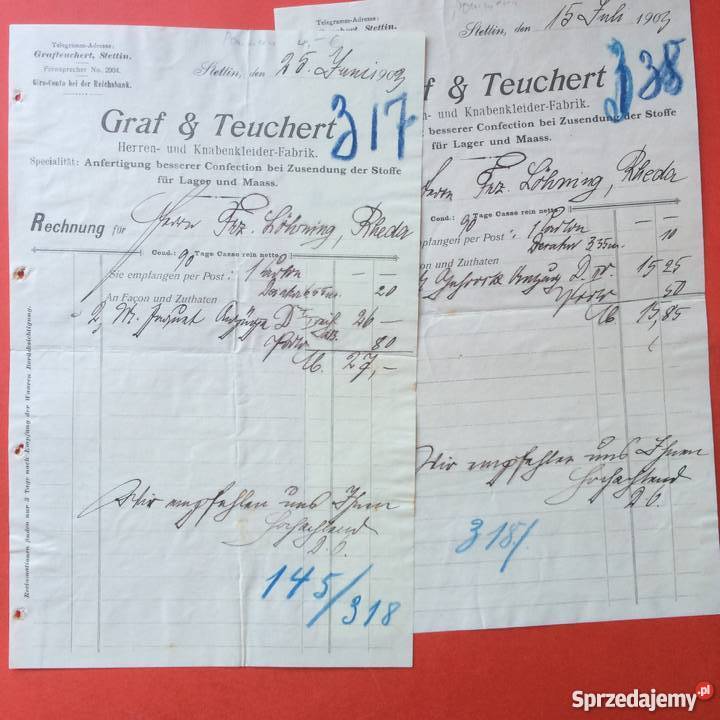 Telegramm-Adresse:
Grafteuchert, Stettin.
Fernsprecher No. 2904.
Giro-Conto bei der Reichsbank.
Stettin, den 25. Juni 1909
317
Graf & Teuchert
Herren- und Knabenkleider-Fabrik.
Specialität: Anfertigung besserer Confection bei Zusendung der Stoffe
für Lager und Maass.
Rechnung für Herrn Frz. Löhning, Rheda
Cond.: Tage Casse rein netto
90
Sie empfangen per Post: 1 — —
20
An Façon und Zuthaten
2 Jaquet Anzüge 26 —
Porto 80
M. 27,—
Reclamationen finden nur 3 Tage nach Empfang der Waaren Berücksichtigung.
Wir empfehlen uns Ihnen
Hochachtend
D. O.
145/318
Stettin.
Reichsbank.
Stettin, den 15 Juli 1909
338
f & Teuchert
und Knabenkleider-Fabrik.
besserer Confection bei Zusendung der Stoffe
für Lager und Maass.
Herrn Frz. Löhning, Rheda
Cond.: Tage Casse rein netto
90
empfangen per Post: 1 — —
10
on und Zuthaten
Gehrock Anzug 15 25
Porto 50
M. 15,85
Wir empfehlen uns Ihnen
Hochachtend
D. O.
318/
Sprzedajemy.pl